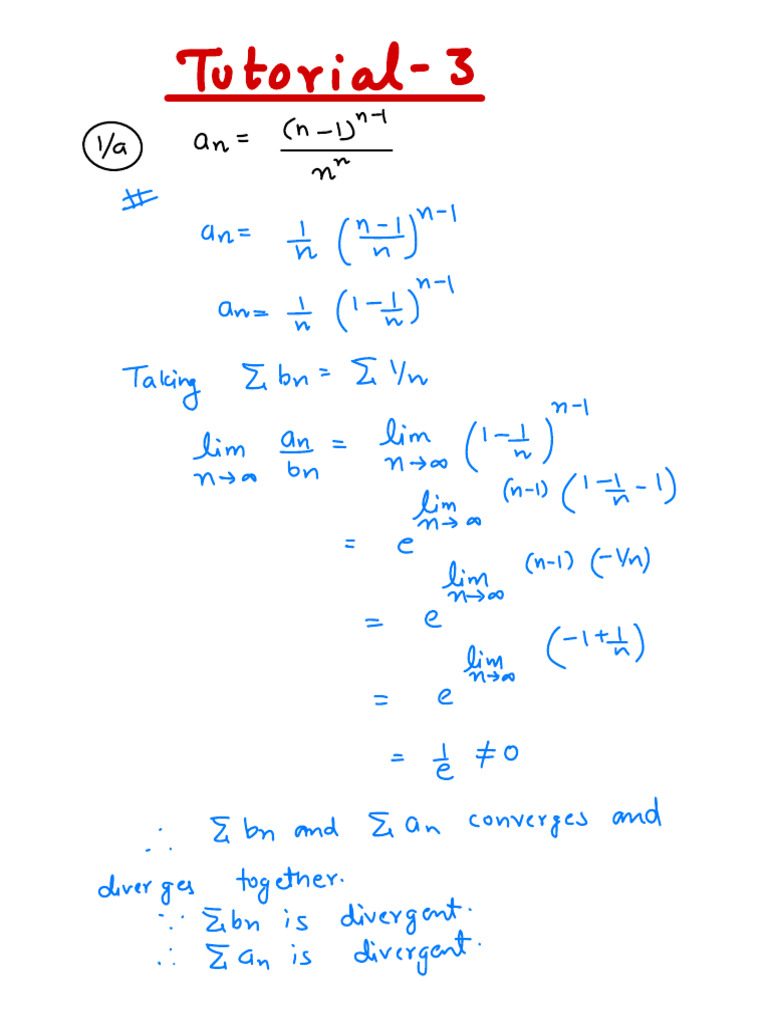 Tutorial-3
1/a aₙ = (n-1)ⁿ⁻¹ / nⁿ
#
aₙ = 1/n ((n-1)/n)ⁿ⁻¹
aₙ = 1/n (1 - 1/n)ⁿ⁻¹
Taking Σ bn = Σ 1/n
lim n→∞ an/bn = lim n→∞ (1 - 1/n)ⁿ⁻¹
= e^{lim n→∞ (n-1) (1 - 1/n - 1)}
= e^{lim n→∞ (n-1) (-1/n)}
= e^{lim n→∞ (-1 + 1/n)}
= 1/e ≠ 0
∴ Σ bn and Σ an converges and
diverges together.
∵ Σ bn is divergent.
∴ Σ an is divergent.